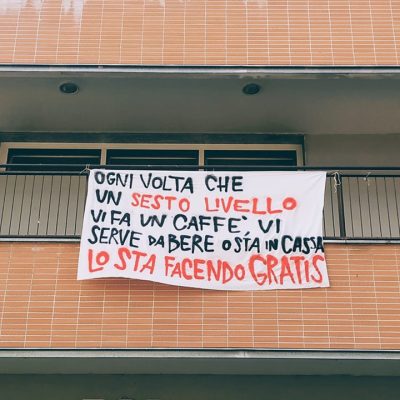 OGNI VOLTA CHE
UN SESTO LIVELLO
VI FA UN CAFFE', VI
SERVE DA BERE O STA IN CASSA
LO STA FACENDO GRATIS